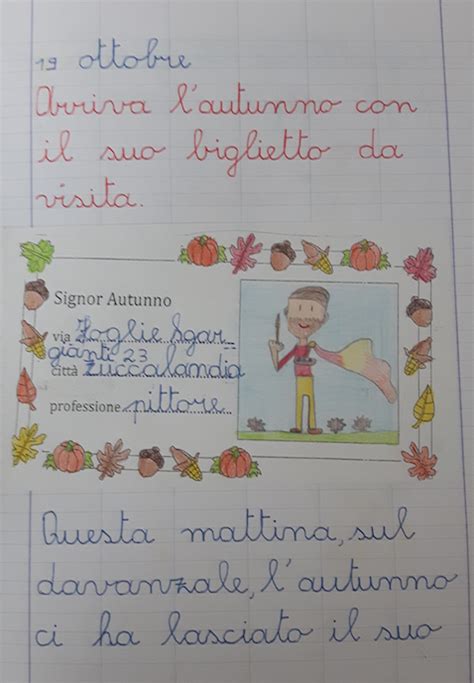 19 ottobre
Arriva l'autunno con
il suo biglietto da
visita.
Signor Autunno
via Foglie Sgar_
gianti 23
città Zuccalandia
professione pittore
Questa mattina, sul
davanzale, l'autunno
ci ha lasciato il suo